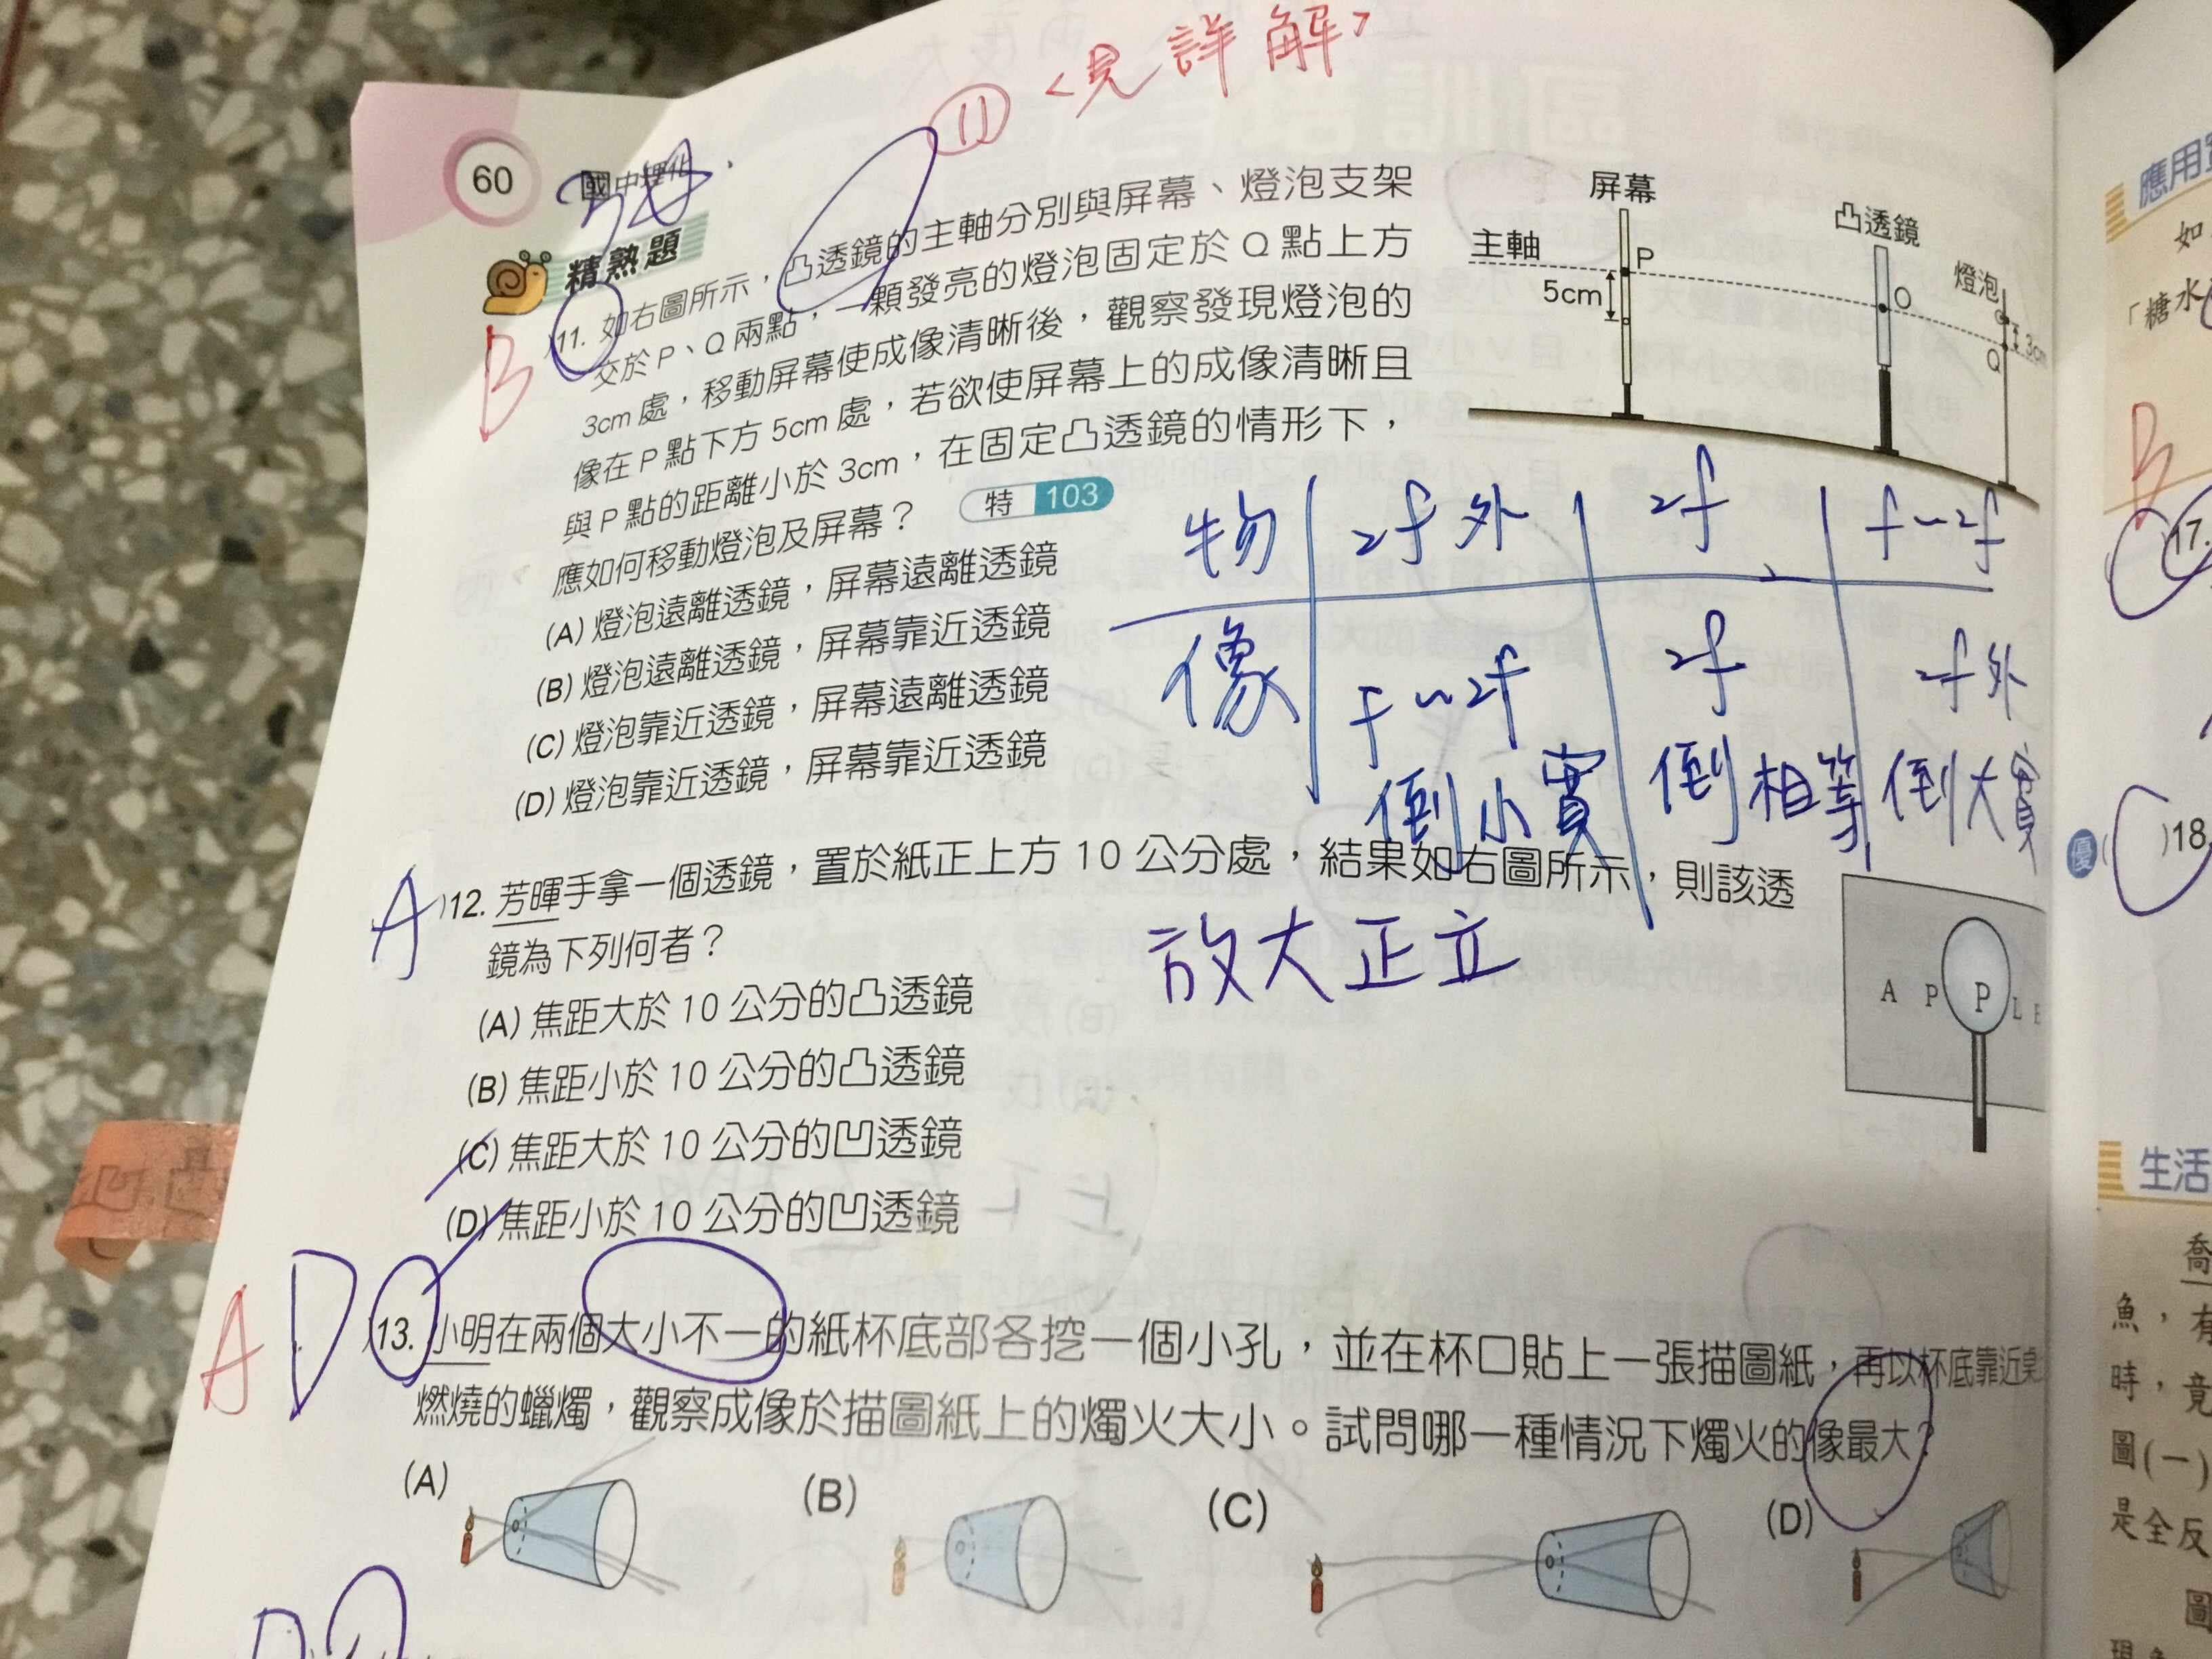 ⑪ <見詳解>
60 國中理化
精熟題
B )11. 如右圖所示，凸透鏡的主軸分別與屏幕、燈泡支架
交於 P、Q 兩點，一顆發亮的燈泡固定於 Q 點上方
3cm 處，移動屏幕使成像清晰後，觀察發現燈泡的
像在 P 點下方 5cm 處，若欲使屏幕上的成像清晰且
與 P 點的距離小於 3cm，在固定凸透鏡的情形下，
應如何移動燈泡及屏幕？ 特 103
(A) 燈泡遠離透鏡，屏幕遠離透鏡
(B) 燈泡遠離透鏡，屏幕靠近透鏡
(C) 燈泡靠近透鏡，屏幕遠離透鏡
(D) 燈泡靠近透鏡，屏幕靠近透鏡
屏幕
凸透鏡
主軸
P
燈泡
5cm
O
3cm
Q
物 2f外 2f f~2f
像 f~2f 2f 2f外
倒小實 倒相等 倒大實
A )12. 芳暉手拿一個透鏡，置於紙正上方 10 公分處，結果如右圖所示，則該透
鏡為下列何者？
放大正立
(A) 焦距大於 10 公分的凸透鏡
(B) 焦距小於 10 公分的凸透鏡
(C) 焦距大於 10 公分的凹透鏡
(D) 焦距小於 10 公分的凹透鏡
A P P L E
A D )13. 小明在兩個大小不一的紙杯底部各挖一個小孔，並在杯口貼上一張描圖紙，再以杯底靠近
燃燒的蠟燭，觀察成像於描圖紙上的燭火大小。試問哪一種情況下燭火的像最大？
(A) (B) (C) (D)
應用
如
「糖水
B
17.
優 )18.
生活
喬
魚，有
時，竟
圖(一)
是全反
圖